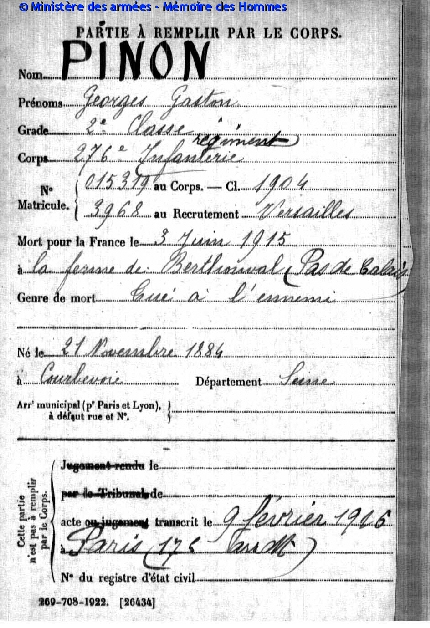 © Ministère des armées - Mémoire des Hommes
PARTIE À REMPLIR PAR LE CORPS.
Nom PINON
Prénoms Georges Gaston
Grade 2e Classe
régiment
Corps 276e Infanterie
N° Matricule. 015319 au Corps. — Cl. 1904
3968 au Recrutement Versailles
Mort pour la France le 3 Juin 1915
à la ferme de Berthonval (Pas de Calais)
Genre de mort Tué à l'ennemi
Né le 21 Novembre 1884
à Courbevoie Département Seine
Arrt municipal (pr Paris et Lyon),
à défaut rue et N°.
Cette partie n'est pas à remplir par le Corps.
Jugement rendu le
par le Tribunal de
acte ou jugement transcrit le 9 février 1916
à Paris (17e Arrdt)
N° du registre d'état civil
269-708-1922. [26434]